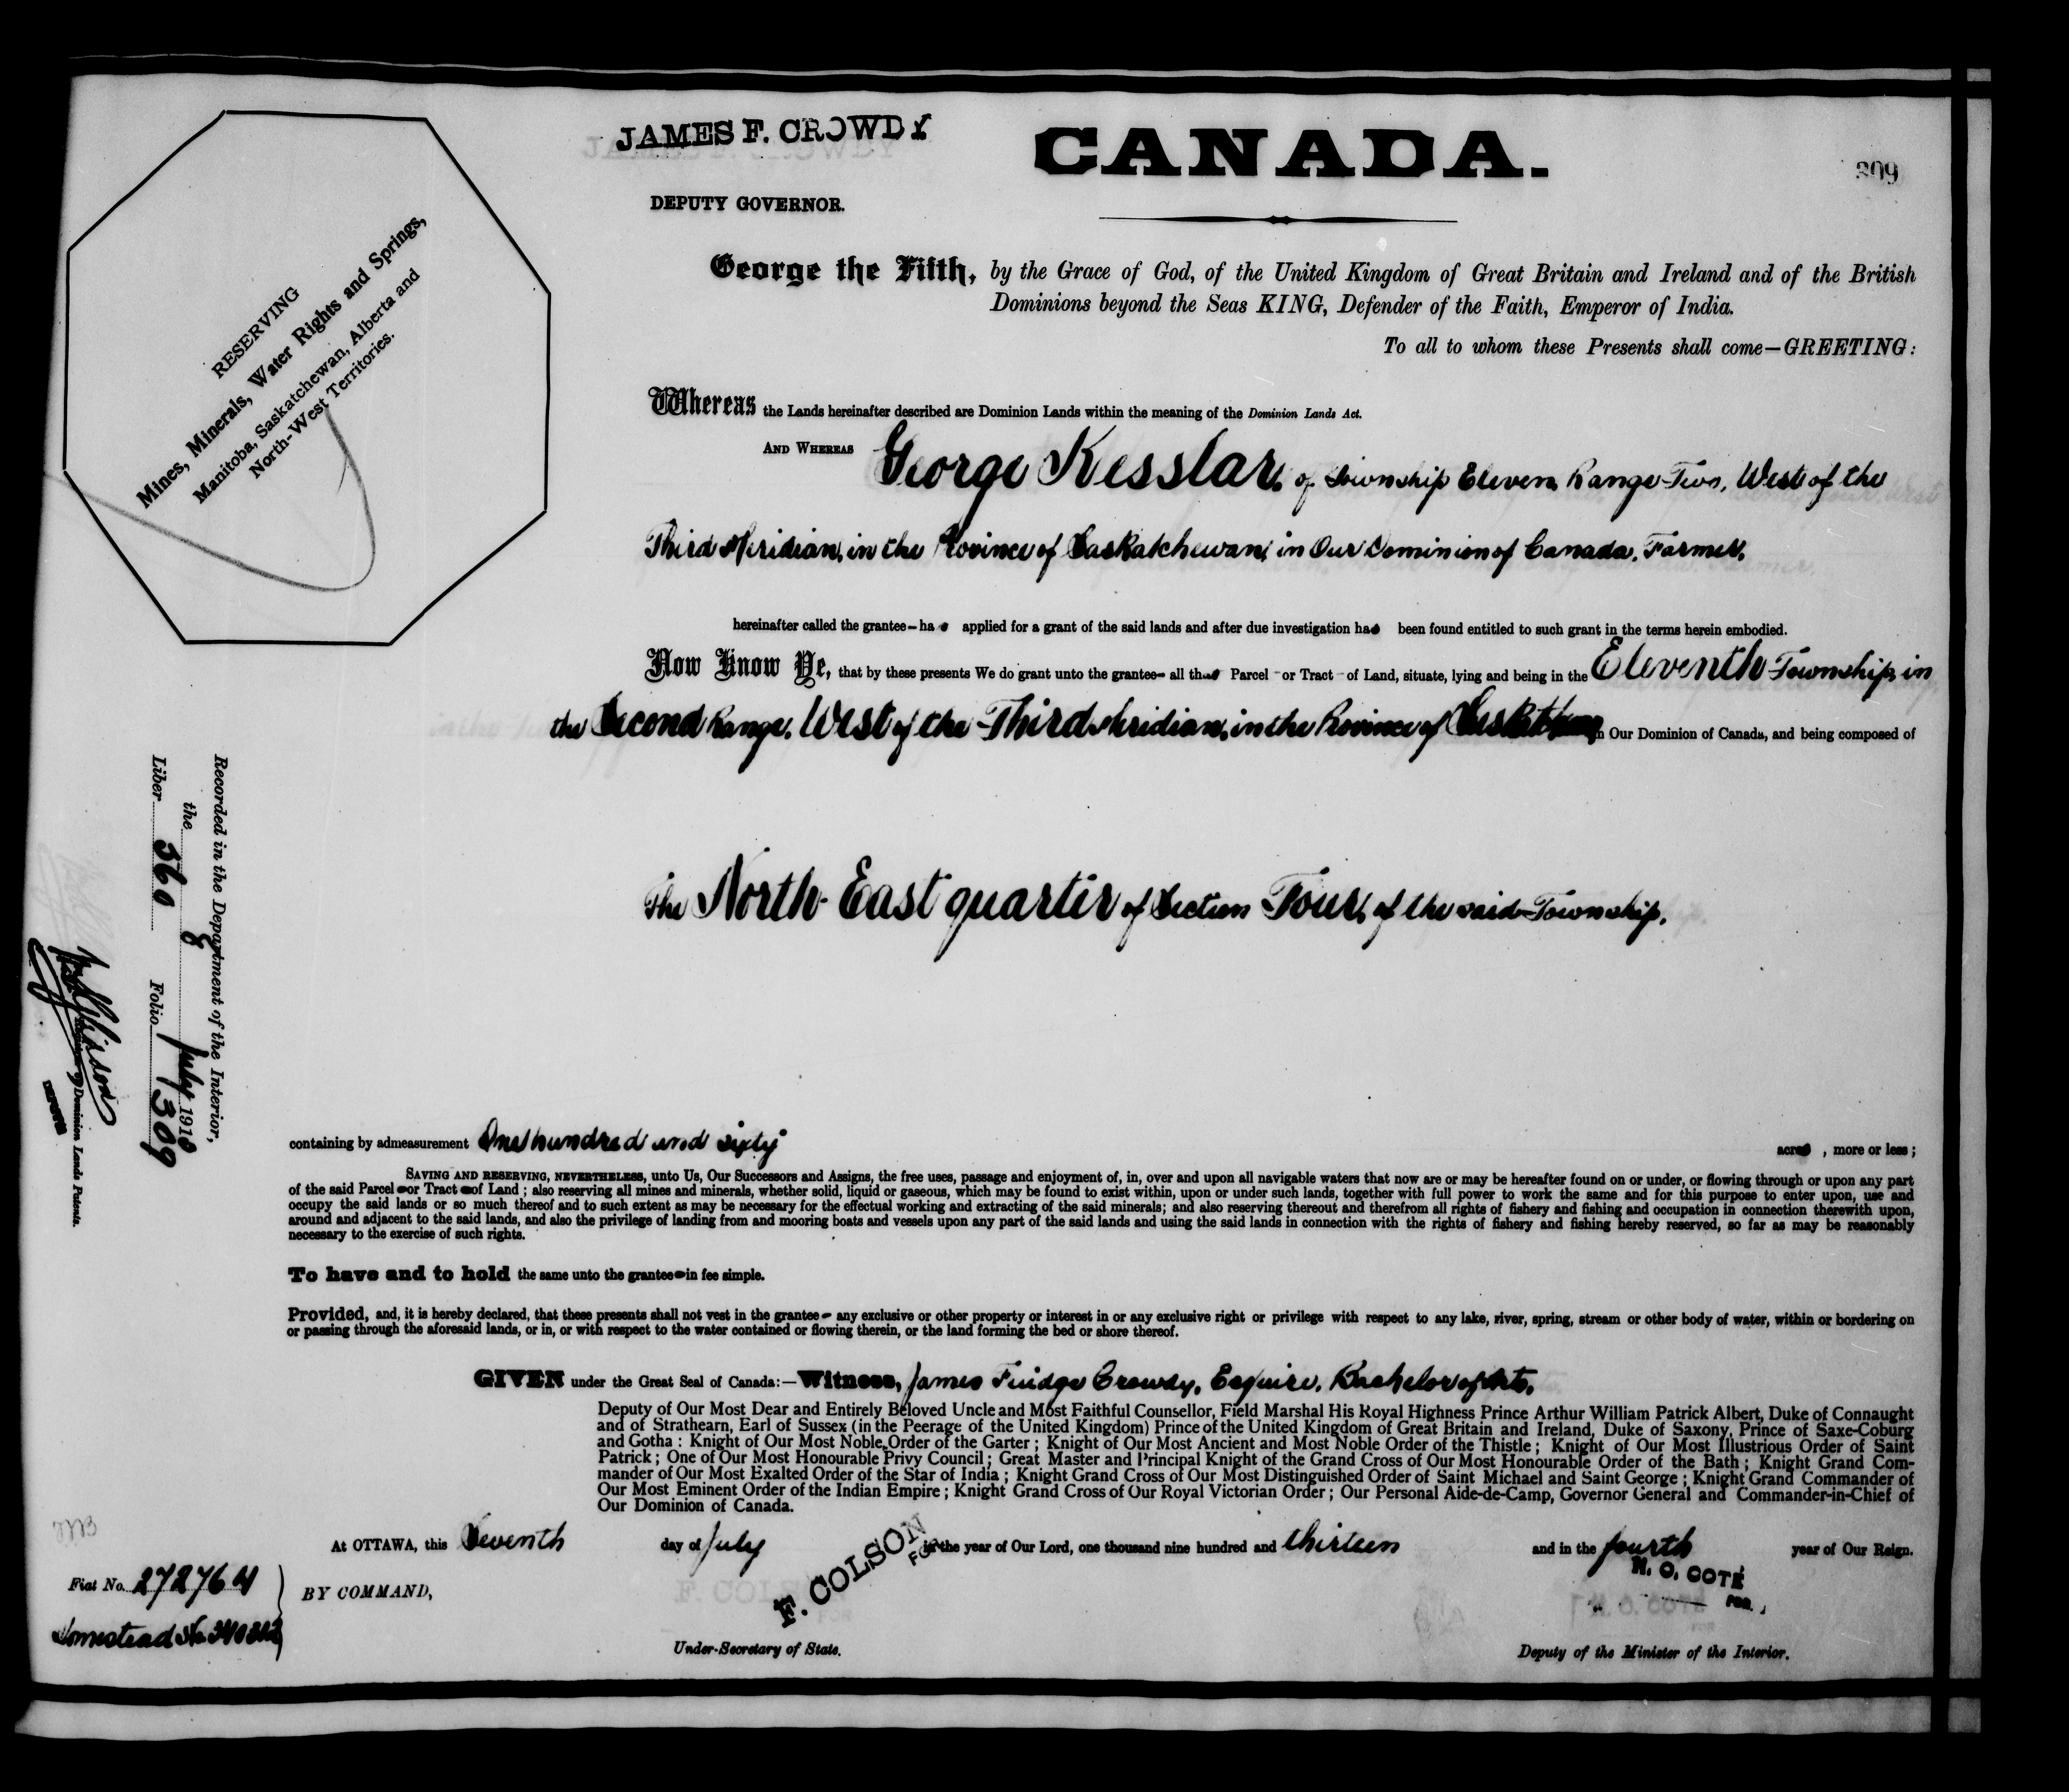 JAMES F. CROWDY
CANADA.
309
DEPUTY GOVERNOR.
RESERVING
Mines, Minerals, Water Rights and Springs,
Manitoba, Saskatchewan, Alberta and
North-West Territories.
George the Fifth, by the Grace of God, of the United Kingdom of Great Britain and Ireland and of the British
Dominions beyond the Seas KING, Defender of the Faith, Emperor of India.
To all to whom these Presents shall come—GREETING:
Whereas the Lands hereinafter described are Dominion Lands within the meaning of the Dominion Lands Act.
AND WHEREAS George Kesslar, of Township Eleven, Range Two, West of the
Third Meridian, in the Province of Saskatchewan, in Our Dominion of Canada, Farmer,
hereinafter called the grantee—has applied for a grant of the said lands and after due investigation has been found entitled to such grant in the terms herein embodied.
Now Know Ye, that by these presents We do grant unto the grantee— all that Parcel - or Tract - of Land, situate, lying and being in the Eleventh Township, in
the Second Range, West of the Third Meridian, in the Province of Saskatchewan, in Our Dominion of Canada, and being composed of
The North-East quarter of Section Four, of the said Township,
Recorded in the Department of the Interior,
the 8 July 1913
Liber 360 Folio 309
of Dominion Lands Patents.
containing by admeasurement One hundred and sixty acres , more or less ;
SAVING AND RESERVING, NEVERTHELESS, unto Us, Our Successors and Assigns, the free uses, passage and enjoyment of, in, over and upon all navigable waters that now are or may be hereafter found on or under, or flowing through or upon any part
of the said Parcel—or Tract—of Land ; also reserving all mines and minerals, whether solid, liquid or gaseous, which may be found to exist within, upon or under such lands, together with full power to work the same and for this purpose to enter upon, use and
occupy the said lands or so much thereof and to such extent as may be necessary for the effectual working and extracting of the said minerals; and also reserving thereout and therefrom all rights of fishery and fishing and occupation in connection therewith upon,
around and adjacent to the said lands, and also the privilege of landing from and mooring boats and vessels upon any part of the said lands and using the said lands in connection with the rights of fishery and fishing hereby reserved, so far as may be reasonably
necessary to the exercise of such rights.
To have and to hold the same unto the grantee—in fee simple.
Provided, and, it is hereby declared, that these presents shall not vest in the grantee— any exclusive or other property or interest in or any exclusive right or privilege with respect to any lake, river, spring, stream or other body of water, within or bordering on
or passing through the aforesaid lands, or in, or with respect to the water contained or flowing therein, or the land forming the bed or shore thereof.
GIVEN under the Great Seal of Canada:—Witness, James Fuidge Crowdy, Esquire, Bachelor of Arts,
Deputy of Our Most Dear and Entirely Beloved Uncle and Most Faithful Counsellor, Field Marshal His Royal Highness Prince Arthur William Patrick Albert, Duke of Connaught
and of Strathearn, Earl of Sussex (in the Peerage of the United Kingdom) Prince of the United Kingdom of Great Britain and Ireland, Duke of Saxony, Prince of Saxe-Coburg
and Gotha : Knight of Our Most Noble Order of the Garter ; Knight of Our Most Ancient and Most Noble Order of the Thistle ; Knight of Our Most Illustrious Order of Saint
Patrick ; One of Our Most Honourable Privy Council ; Great Master and Principal Knight of the Grand Cross of Our Most Honourable Order of the Bath ; Knight Grand Com-
mander of Our Most Exalted Order of the Star of India ; Knight Grand Cross of Our Most Distinguished Order of Saint Michael and Saint George ; Knight Grand Commander of
Our Most Eminent Order of the Indian Empire ; Knight Grand Cross of Our Royal Victorian Order ; Our Personal Aide-de-Camp, Governor General and Commander-in-Chief of
Our Dominion of Canada.
At OTTAWA, this Seventh day of July in the year of Our Lord, one thousand nine hundred and thirteen and in the fourth year of Our Reign.
F. COLSON
FOR
N. O. COTÉ
FOR.
Fiat No. 272764
BY COMMAND,
Homestead No.
Under-Secretary of State.
Deputy of the Minister of the Interior.